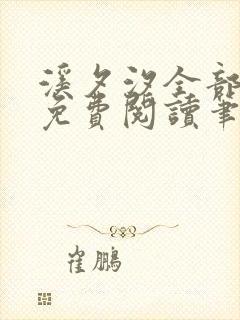 溪夕汐全部
免費閱讀筆
崔鵬